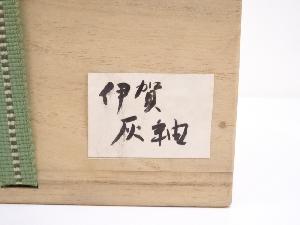 伊賀
灰釉